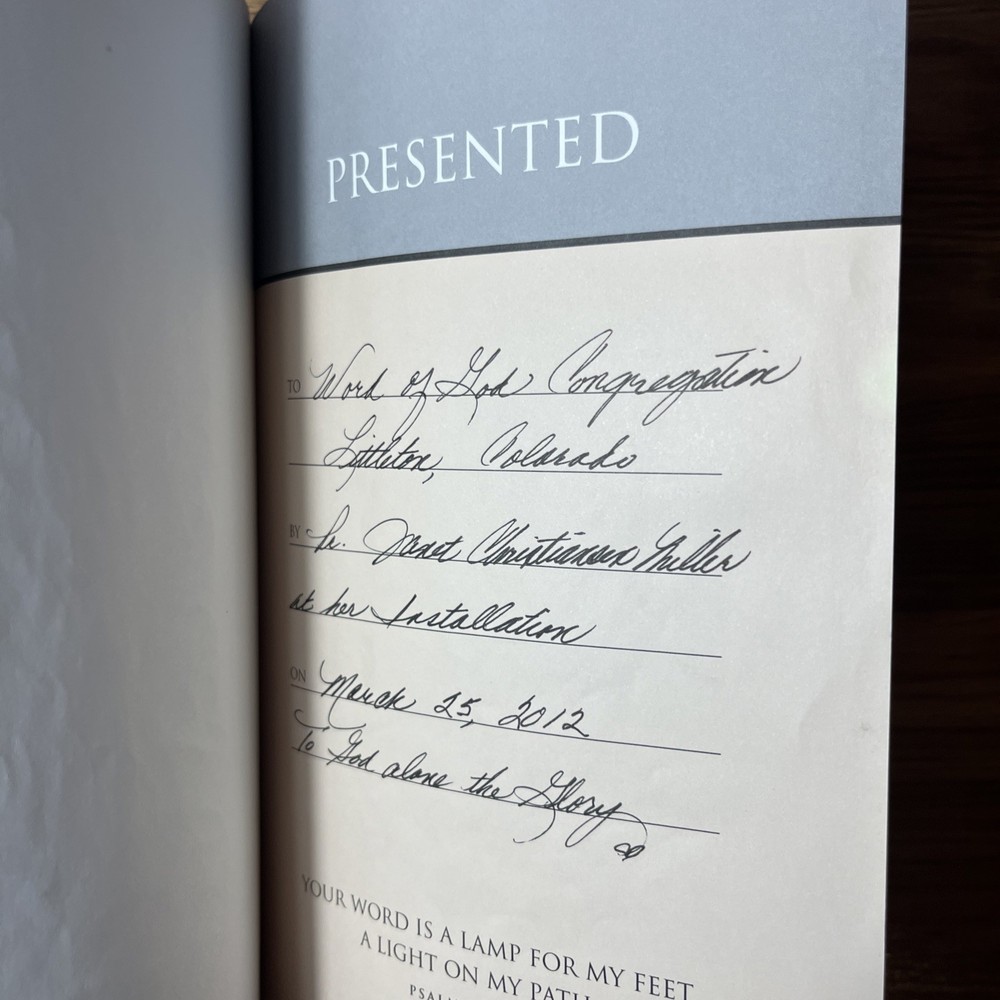 PRESENTED
TO Word of God Congregation
Littleton, Colorado
BY Pr. Janet Christiansen Miller
at her Installation
ON March 25, 2012
To God alone the Glory
YOUR WORD IS A LAMP FOR MY FEET
A LIGHT ON MY PATH